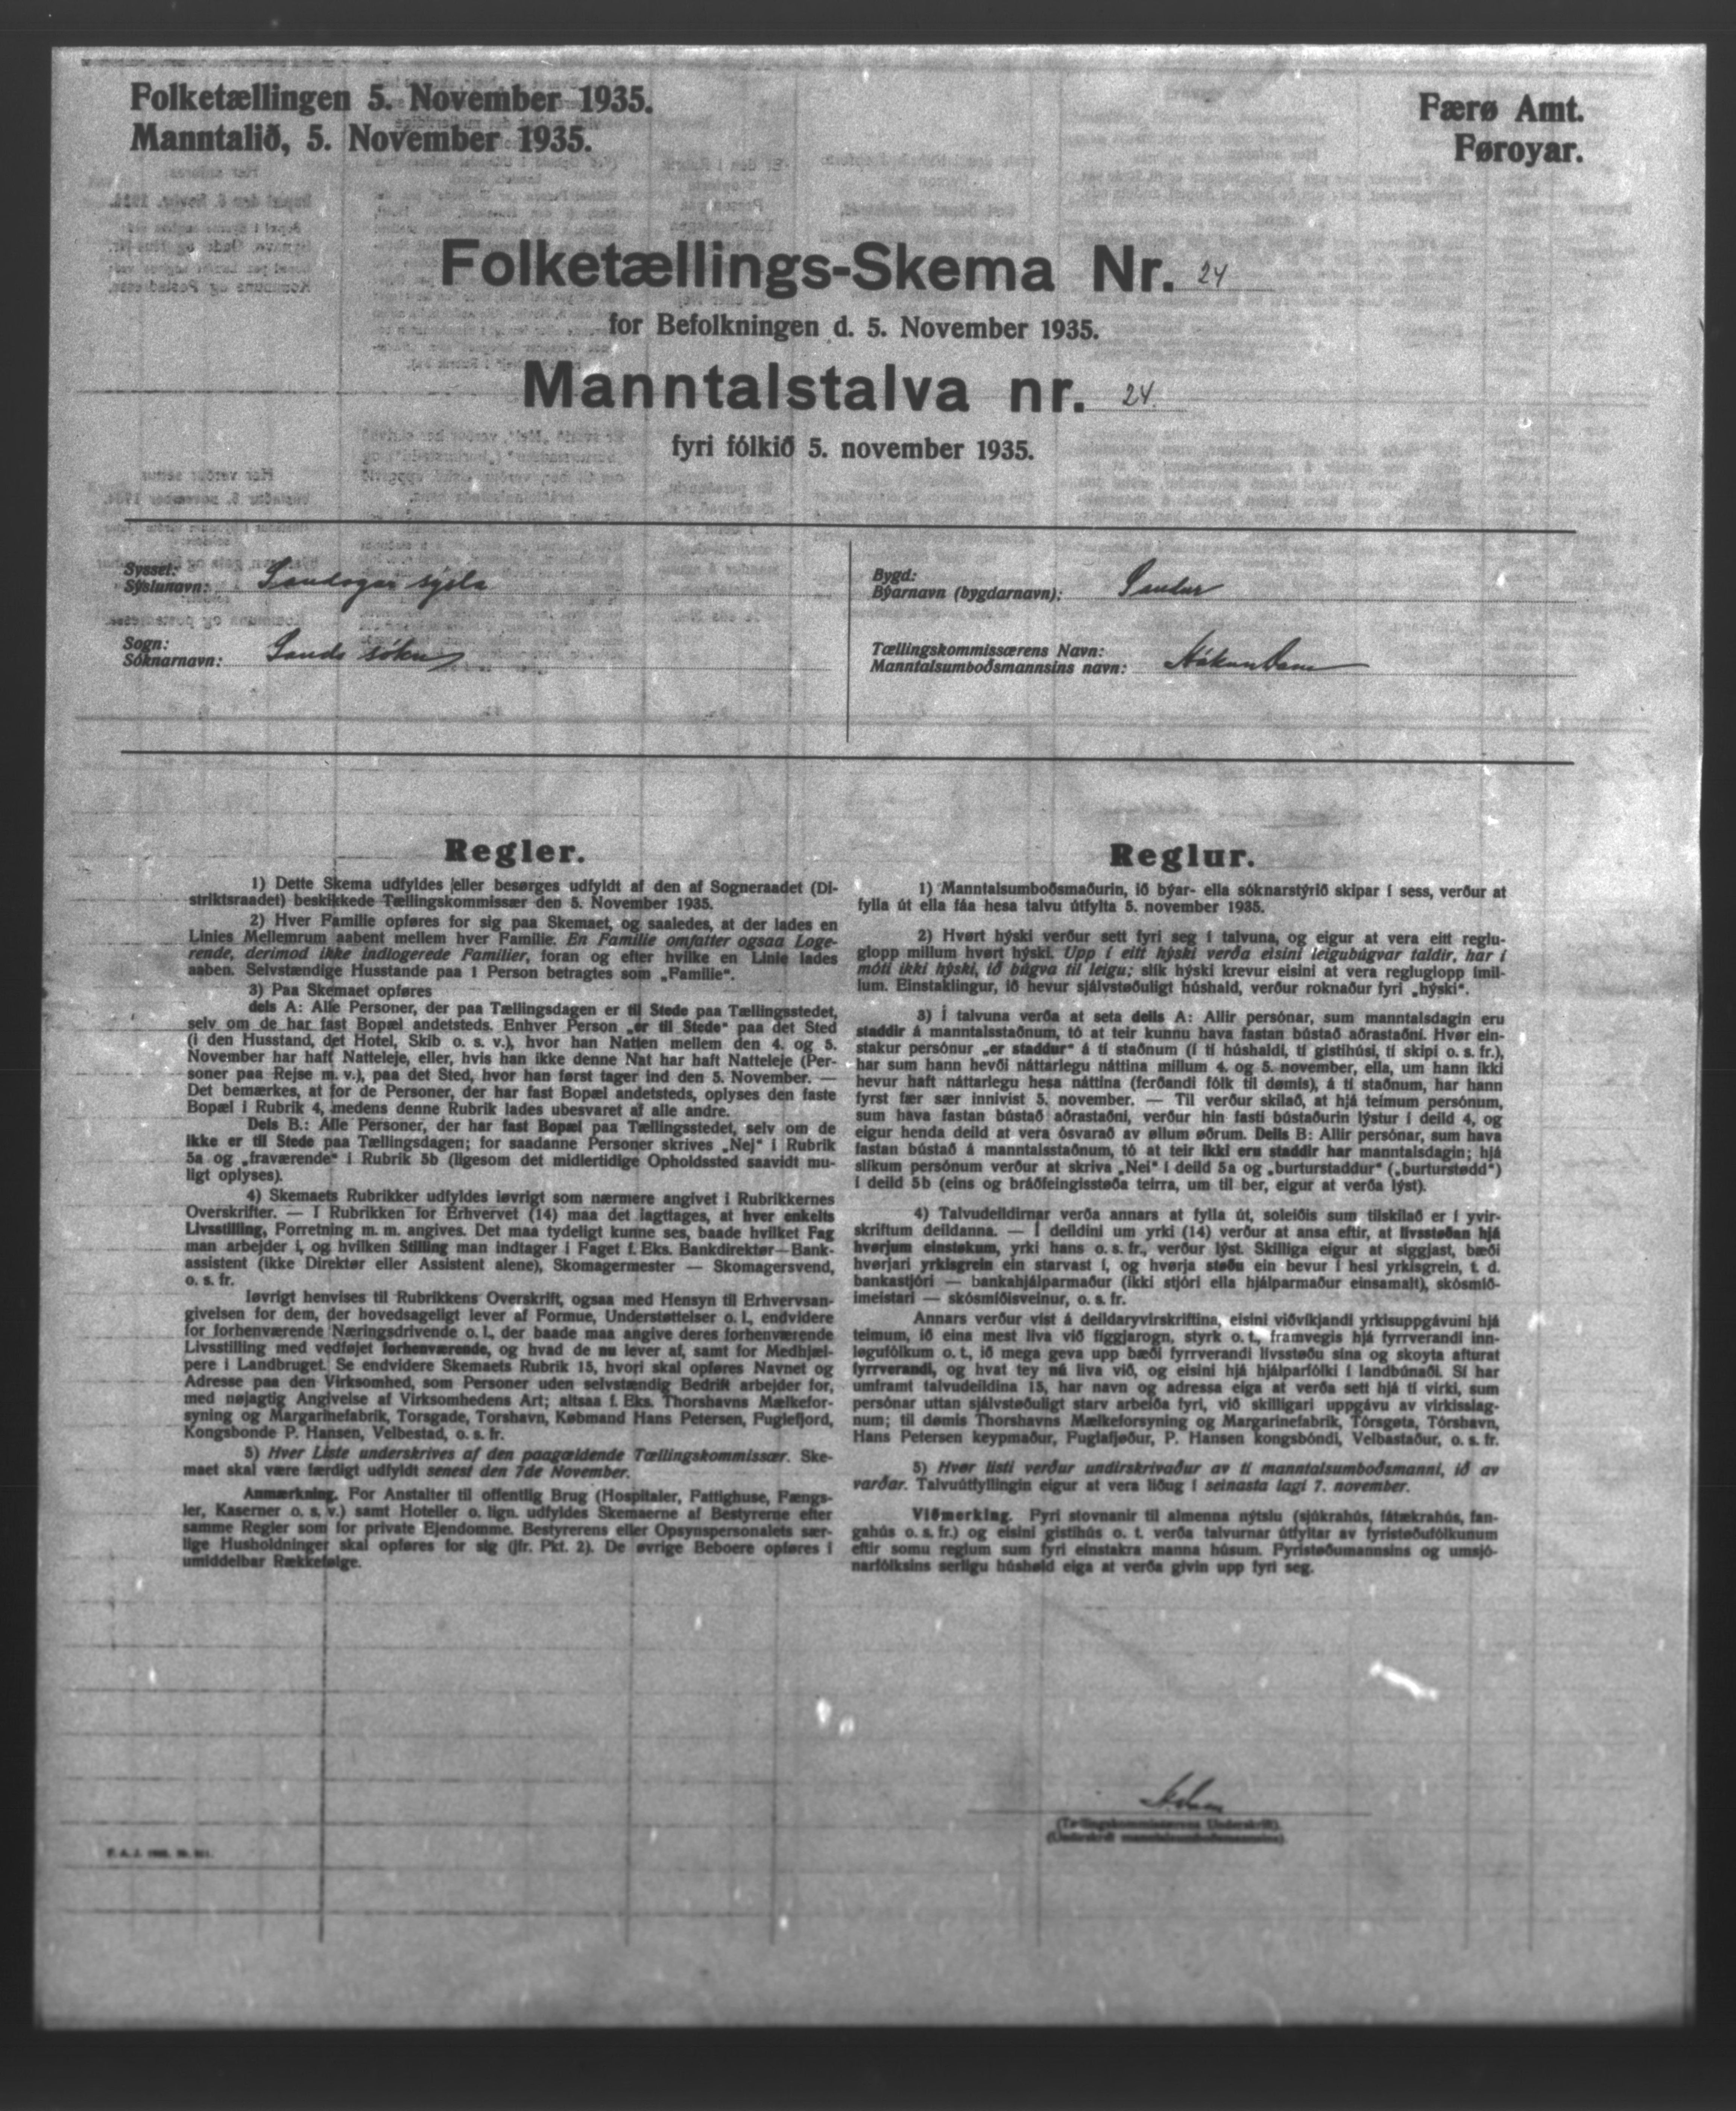 Folketællingen 5. November 1935.
Manntalið, 5. November 1935.
Færø Amt.
Føroyar.
Folketællings-Skema Nr. 24
for Befolkningen d. 5. November 1935.
Manntalstalva nr. 24.
fyri fólkið 5. november 1935.
Syssel:
Sýslunavn: Sandoyar sýsla
Sogn:
Sóknarnavn: Sands sókn
Bygd:
Býarnavn (bygdarnavn): Sandur
Tællingskommissærens Navn:
Manntalsumboðsmannsins navn: Hákun Dam
Regler.
1) Dette Skema udfyldes eller besørges udfyldt af den af Sogneraadet (Di-
striktsraadet) beskikkede Tællingskommissær den 5. November 1935.
2) Hver Familie opføres for sig paa Skemaet, og saaledes, at der lades en
Linies Mellemrum aabent mellem hver Familie. En Familie omfatter ogsaa Loge-
rende, derimod ikke indlogerede Familier, foran og efter hvilke en Linie lades
aaben. Selvstændige Husstande paa 1 Person betragtes som „Familie“.
3) Paa Skemaet opføres
dels A: Alle Personer, der paa Tællingsdagen er til Stede paa Tællingsstedet,
selv om de har fast Bopæl andetsteds. Enhver Person „er til Stede“ paa det Sted
(i den Husstand, det Hotel, Skib o. s. v.), hvor han Natten mellem den 4. og 5.
November har haft Natteleje, eller, hvis han ikke denne Nat har haft Natteleje (Per-
soner paa Rejse m. v.), paa det Sted, hvor han først tager ind den 5. November. —
Det bemærkes, at for de Personer, der har fast Bopæl andetsteds, oplyses den faste
Bopæl i Rubrik 4, medens denne Rubrik lades ubesvaret af alle andre.
Dels B.: Alle Personer, der har fast Bopæl paa Tællingsstedet, selv om de
ikke er til Stede paa Tællingsdagen; for saadanne Personer skrives „Nej“ i Rubrik
5a og „fraværende“ i Rubrik 5b (ligesom det midlertidige Opholdssted saavidt mu-
ligt oplyses).
4) Skemaets Rubrikker udfyldes iøvrigt som nærmere angivet i Rubrikkernes
Overskrifter. — I Rubrikken for Erhvervet (14) maa det iagttages, at hver enkelts
Livsstilling, Forretning m. m. angives. Det maa tydeligt kunne ses, baade hvilket Fag
man arbejder i, og hvilken Stilling man indtager i Faget f. Eks. Bankdirektør—Bank-
assistent (ikke Direktør eller Assistent alene), Skomagermester — Skomagersvend,
o. s. fr.
Iøvrigt henvises til Rubrikkens Overskrift, ogsaa med Hensyn til Erhvervsan-
givelsen for dem, der hovedsageligt lever af Formue, Understøttelser o. l., endvidere
for forhenværende Næringsdrivende o. l., der baade maa angive deres forhenværende
Livsstilling med vedføjet forhenværende, og hvad de nu lever af, samt for Medhjæl-
pere i Landbruget. Se endvidere Skemaets Rubrik 15, hvori skal opføres Navnet og
Adresse paa den Virksomhed, som Personer uden selvstændig Bedrift arbejder for,
med nøjagtig Angivelse af Virksomhedens Art; altsaa f. Eks. Thorshavns Mælkefor-
syning og Margarinefabrik, Torsgade, Torshavn, Købmand Hans Petersen, Fuglefjord,
Kongsbonde P. Hansen, Velbestad, o. s. fr.
5) Hver Liste underskrives af den paagældende Tællingskommissær. Ske-
maet skal være færdigt udfyldt senest den 7de November.
Anmærkning. For Anstalter til offentlig Brug (Hospitaler, Fattighuse, Fængs-
ler, Kaserner o. s. v.) samt Hoteller o. lign. udfyldes Skemaerne af Bestyrerne efter
samme Regler som for private Ejendomme. Bestyrerens eller Opsynspersonalets sær-
lige Husholdninger skal opføres for sig (jfr. Pkt. 2). De øvrige Beboere opføres i
umiddelbar Rækkefølge.
Reglur.
1) Manntalsumboðsmaðurin, ið býar- ella sóknarstýrið skipar í sess, verður at
fylla út ella fáa hesa talvu útfylta 5. november 1935.
2) Hvørt hýski verður sett fyri seg í talvuna, og eigur at vera eitt reglu-
glopp millum hvørt hýski. Upp í eitt hýski verða eisini leigubúgvar taldir, har í
móti ikki hýski, ið búgva til leigu; slik hýski krevur eisini at vera regluglopp ímil-
lum. Einstaklingur, ið hevur sjálvstøðuligt húshald, verður roknaður fyri „hýski“.
3) Í talvuna verða at seta deils A: Allir persónar, sum manntalsdagin eru
staddir á manntalsstaðnum, tó at teir kunnu hava fastan bústað aðrastaðni. Hvør ein-
stakur persónur „er staddur“ á tí staðnum (í tí húshaldi, tí gistihúsi, tí skipi o. s. fr.),
har sum hann hevði náttarlegu náttina millum 4. og 5. november, ella, um hann ikki
hevur haft náttarlegu hesa náttina (ferðandi fólk til dømis), á tí staðnum, har hann
fyrst fær sær innivist 5. november. — Til verður skilað, at hjá teimum persónum,
sum hava fastan bústað aðrastaðni, verður hin fasti bústaðurin lýstur í deild 4, og
eigur henda deild at vera ósvarað av øllum øðrum. Deils B: Allir persónar, sum hava
fastan bústað á manntalsstaðnum, tó at teir ikki eru staddir har manntalsdagin; hjá
slíkum persónum verður at skriva „Nei“ í deild 5a og „burturstaddur“ („burturstødd“)
í deild 5b (eins og bráðfeingisstøða teirra, um til ber, eigur at verða lýst).
4) Talvudeildirnar verða annars at fylla út, soleiðis sum tilskilað er í yvir-
skriftum deildanna. — Í deildini um yrki (14) verður at ansa eftir, at livsstøðan hjá
hvørjum einstøkum, yrki hans o. s. fr., verður lýst. Skilliga eigur at siggjast, bæði
hvørjari yrkisgrein ein starvast í, og hvørja støðu ein hevur í hesi yrkisgrein, t. d.
bankastjóri — bankahjálparmaður (ikki stjóri ella hjálparmaður einsamalt), skósmið-
imeistari — skósmiðisveinur, o. s. fr.
Annars verður víst á deildaryvirskriftina, eisini viðvíkjandi yrkisuppgávuni hjá
teimum, ið eina mest liva við figgjarogn, styrk o. t., framvegis hjá fyrrverandi inn-
løgufólkum o. t., ið mega geva upp bæði fyrrverandi livsstøðu sína og skoyta afturat
fyrrverandi, og hvat tey nú liva við, og eisini hjá hjálparfólki í landbúnaði. Sí har
umframt talvudeildina 15, har navn og adressa eiga at verða sett hjá tí virki, sum
persónar uttan sjálvstøðuligt starv arbeiða fyri, við skilligari uppgávu av virkisslag-
num; til dømis Thorshavns Mælkeforsyning og Margarinefabrik, Tórsgøta, Tórshavn,
Hans Petersen keypmaður, Fuglafjøður, P. Hansen kongsbóndi, Velbastaður, o. s. fr.
5) Hvør listi verður undirskrivaður av tí manntalsumboðsmanni, ið av
varðar. Talvuútfyllingin eigur at vera liðug í seinasta lagi 7. november.
Viðmerking. Fyri stovnanir til almenna nýtslu (sjúkrahús, fátækrahús, fan-
gahús o. s. fr.) og eisini gistihús o. t. verða talvurnar útfyltar av fyristøðufólkunum
eftir somu reglum sum fyri einstakra manna húsum. Fyristøðumannsins og umsjó-
narfólksins serligu húshøld eiga at verða givin upp fyri seg.
(Tællingskommissærens Underskrift).
(Underskrift manntalsumboðsmannsins)